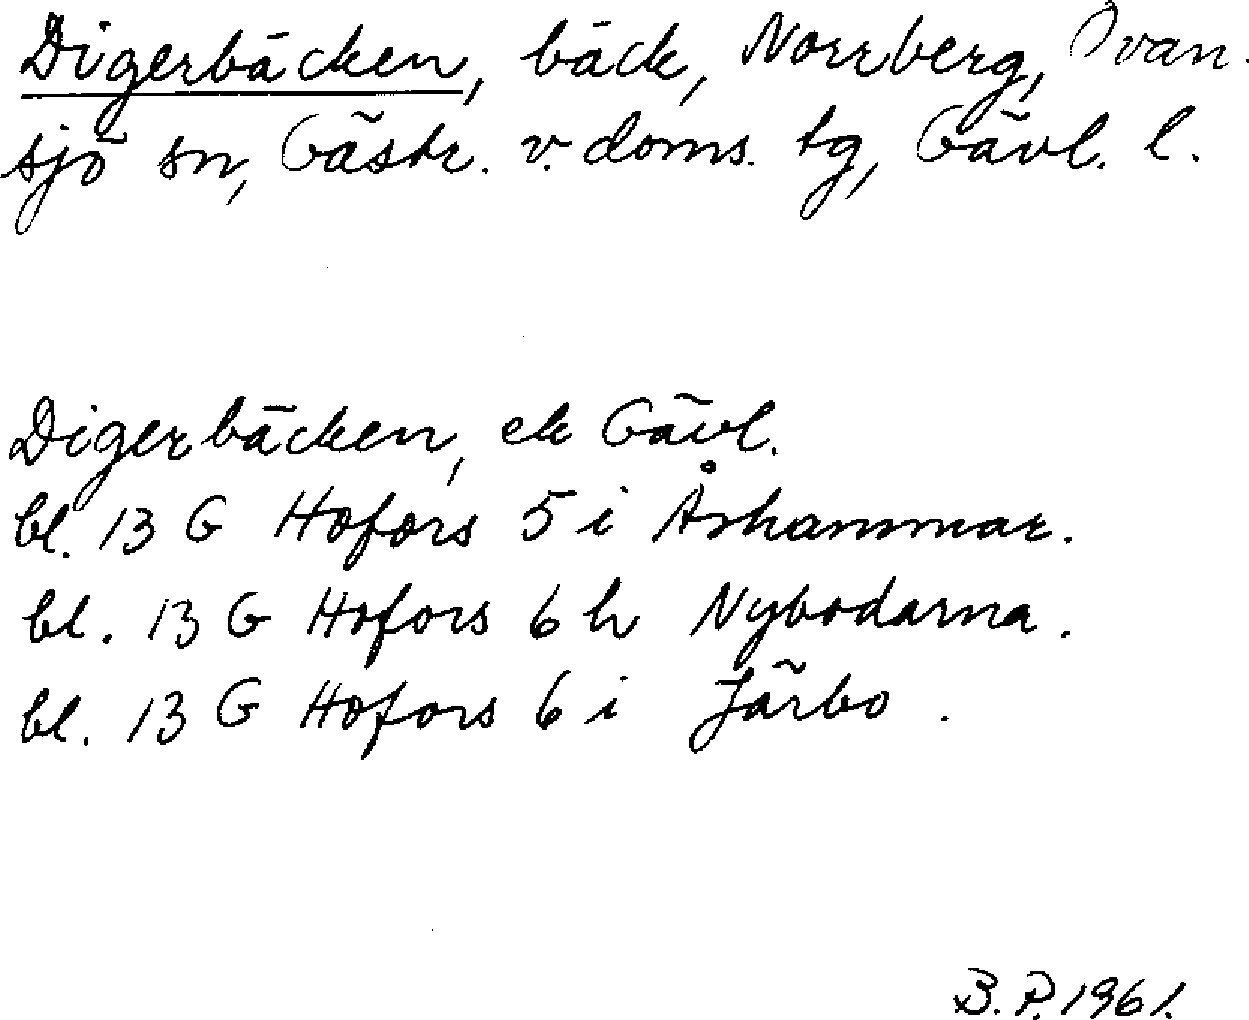 Digerbäcken, bäck, Norrberg, Ovan-
sjö sn, Gästr. v. doms. tg, Gävl. l.
Digerbäcken, ek Gävl.
bl. 13 G Hofors 5 i Åshammar.
bl. 13 G Hofors 6 h Nybodarna.
bl. 13 G Hofors 6 i Järbo.
B. P. 1961.